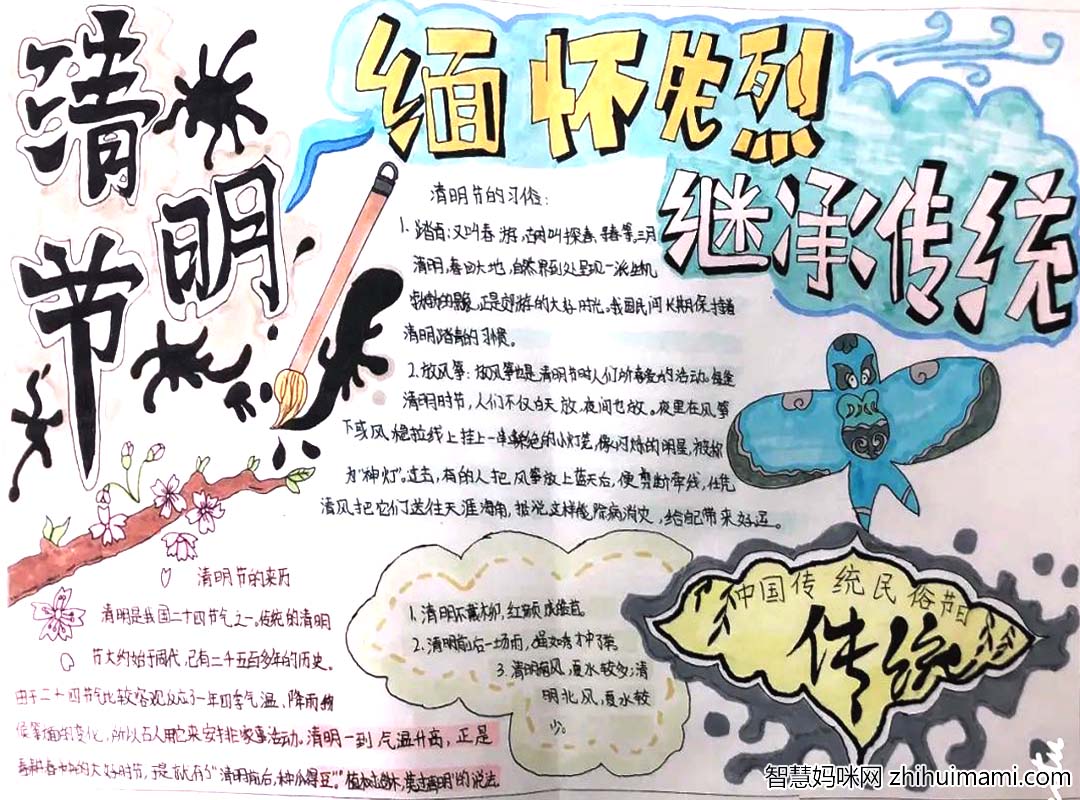 清明节
缅怀先烈
继承传统
清明节的习俗：
1.踏青：又叫春游，古时叫探春、寻春等。三月
清明，春回大地，自然界到处呈现一派生机
勃勃的景象，正是郊游的大好时光。我国民间长期保持着
清明踏青的习惯。
2.放风筝：放风筝也是清明节时人们所喜爱的活动。每逢
清明时节，人们不仅白天放，夜间也放。夜里在风筝
下或风稳拉线上挂上一串串彩色的小灯笼，像闪烁的明星，被称
为“神灯”。过去，有的人把风筝放上蓝天后，便剪断牵线，任凭
清风把它们送往天涯海角，据说这样能除病消灾，给自己带来好运。
清明节的来历
清明是我国二十四节气之一。传统的清明
节大约始于周代，已有二千五百多年的历史。
由于二十四节气比较客观反应了一年四季气温、降雨物
候等方面的变化，所以古人用它来安排农事活动。清明一到气温升高，正是
春耕春种的大好时节，于是就有了“清明前后，种瓜得豆”“植树造林，莫过清明”的说法
1.清明不戴柳，红颜成皓首
2.清明前后一场雨，强如秀才中了举
3.清明南风，夏水较多；清
明北风，夏水较
少。
中国传统民俗节日
传统
智慧妈咪网 zhihuimami.com